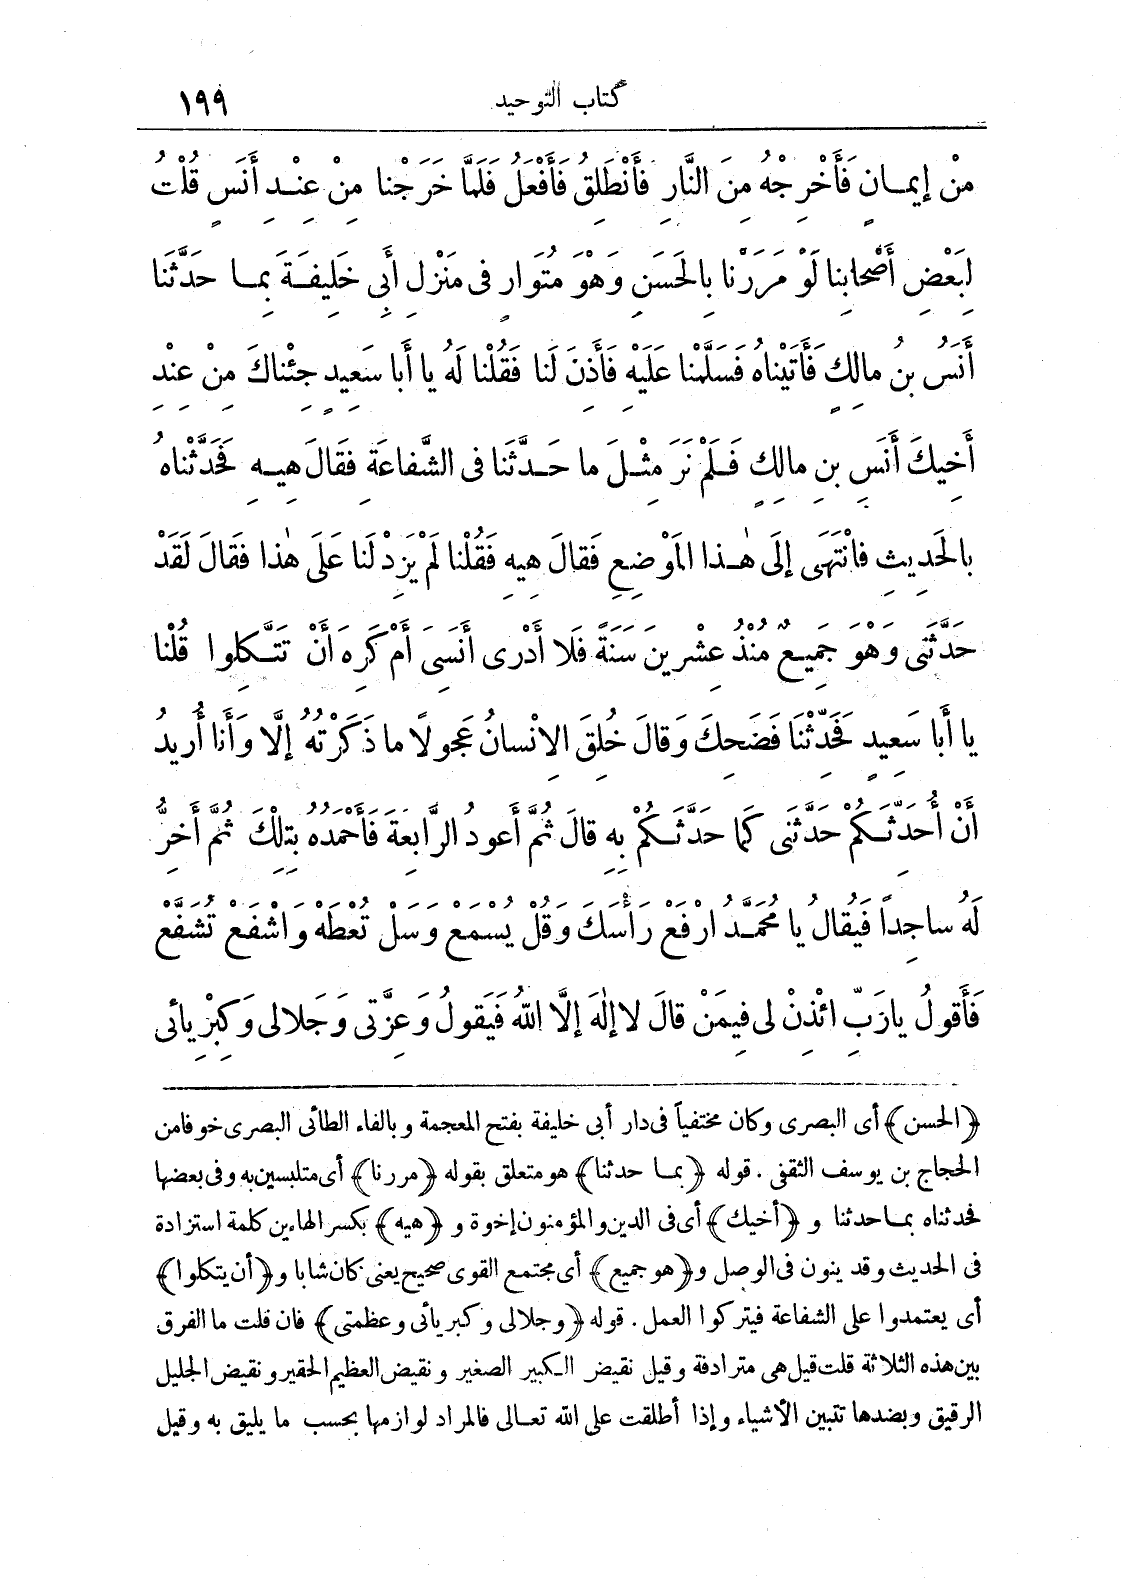 كتاب التوحيد ١٩٩
مِنْ إِيمَـانٍ فَأَخْرِجْهُ مِنَ النَّارِ فَأَنْطَلِقُ فَأَفْعَلُ فَلَمَّا خَرَجْنا مِنْ عِنْـدِ أَنَسٍ قُلْتُ
لِبَعْضِ أَصْحَابِنا لَوْ مَرَرْنا بِالحَسَنِ وَهْوَ مُتَوَارٍ فى مَنْزِلِ أَبِى خَلِيفَةَ بِمـا حَدَّثَنا
أَنَسُ بنُ مالِكٍ فَأَتَيْناهُ فَسَلَّمْنا عَلَيْهِ فَأَذِنَ لَنا فَقُلْنا لَهُ يا أَبا سَعِيدٍ جِئْناكَ مِنْ عِنْدِ
أَخِيكَ أَنَسِ بنِ مالِكٍ فَـلَمْ نَرَ مِثْـلَ ما حَـدَّثَنا فى الشَّفاعَةِ فَقالَ هِيـهِ فَحَدَّثْناهُ
بِالحَدِيثِ فانْتَهَى إِلَى هٰـذا المَوْضِعِ فَقالَ هِيهِ فَقُلْنا لَمْ يَزِدْ لَنا عَلَى هٰذا فَقالَ لَقَدْ
حَدَّثَنِى وَهْوَ جَمِيعٌ مُنْذُ عِشْرِينَ سَنَةً فَلا أَدْرِى أَنَسِىَ أَمْ كَرِهَ أَنْ تَتَّـكِلُوا قُلْنا
يا أَبا سَعِيدٍ فَحَدِّثْنا فَضَحِكَ وَقالَ خُلِقَ الاِنْسانُ عَجُولاً ما ذَكَرْتُهُ إِلَّا وَأَنا أُرِيدُ
أَنْ أُحَدِّثَـكُمْ حَدَّثَنِى كَما حَدَّثَـكُمْ بِهِ قالَ ثُمَّ أَعُودُ الرَّابِعَةَ فَأَحْمَدُهُ بِتِلْكَ ثُمَّ أَخِرُّ
لَهُ ساجِداً فَيُقالُ يا مُحَمَّـدُ ارْفَعْ رَأْسَكَ وَقُلْ يُسْمَعْ وَسَلْ تُعْطَهْ وَاشْفَعْ تُشَفَّعْ
فَأَقُولُ يارَبِّ ائْذِنْ لِى فِيمَنْ قالَ لا إِلٰهَ إِلَّا اللهُ فَيَقُولُ وَعِزَّتِى وَجَلالِى وَكِبْرِيائى
﴿الحسن﴾ أى البصرى وكان مختفياً فى دار أبى خليفة بفتح المعجمة وبالفاء الطائى البصرى خوفا من
الحجاج بن يوسف الثقفى . قوله ﴿بمـا حدثنا﴾ هو متعلق بقوله ﴿مررنا﴾ أى متلبسين به وفى بعضها
فحدثناه بمـا حدثنا و ﴿أخيك﴾ أى فى الدين والمؤمنون إخوة و ﴿هيه﴾ بكسر الهاءين كلمة استزادة
فى الحديث وقد ينون فى الوصل و﴿هو جميع﴾ أى مجتمع القوى صحيح يعنى كان شابا و﴿أن يتكلوا﴾
أى يعتمدوا على الشفاعة فيتركوا العمل . قوله ﴿وجلالى وكبريائى وعظمتى﴾ فان قلت ما الفرق
بين هذه الثلاثة قلت قيل هى مترادفة وقيل نقيض الـكبير الصغير ونقيض العظيم الحقير ونقيض الجليل
الرقيق وبضدها تتبين الأشياء وإذا أطلقت على الله تعـالى فالمراد لوازمها بحسب ما يليق به وقيل